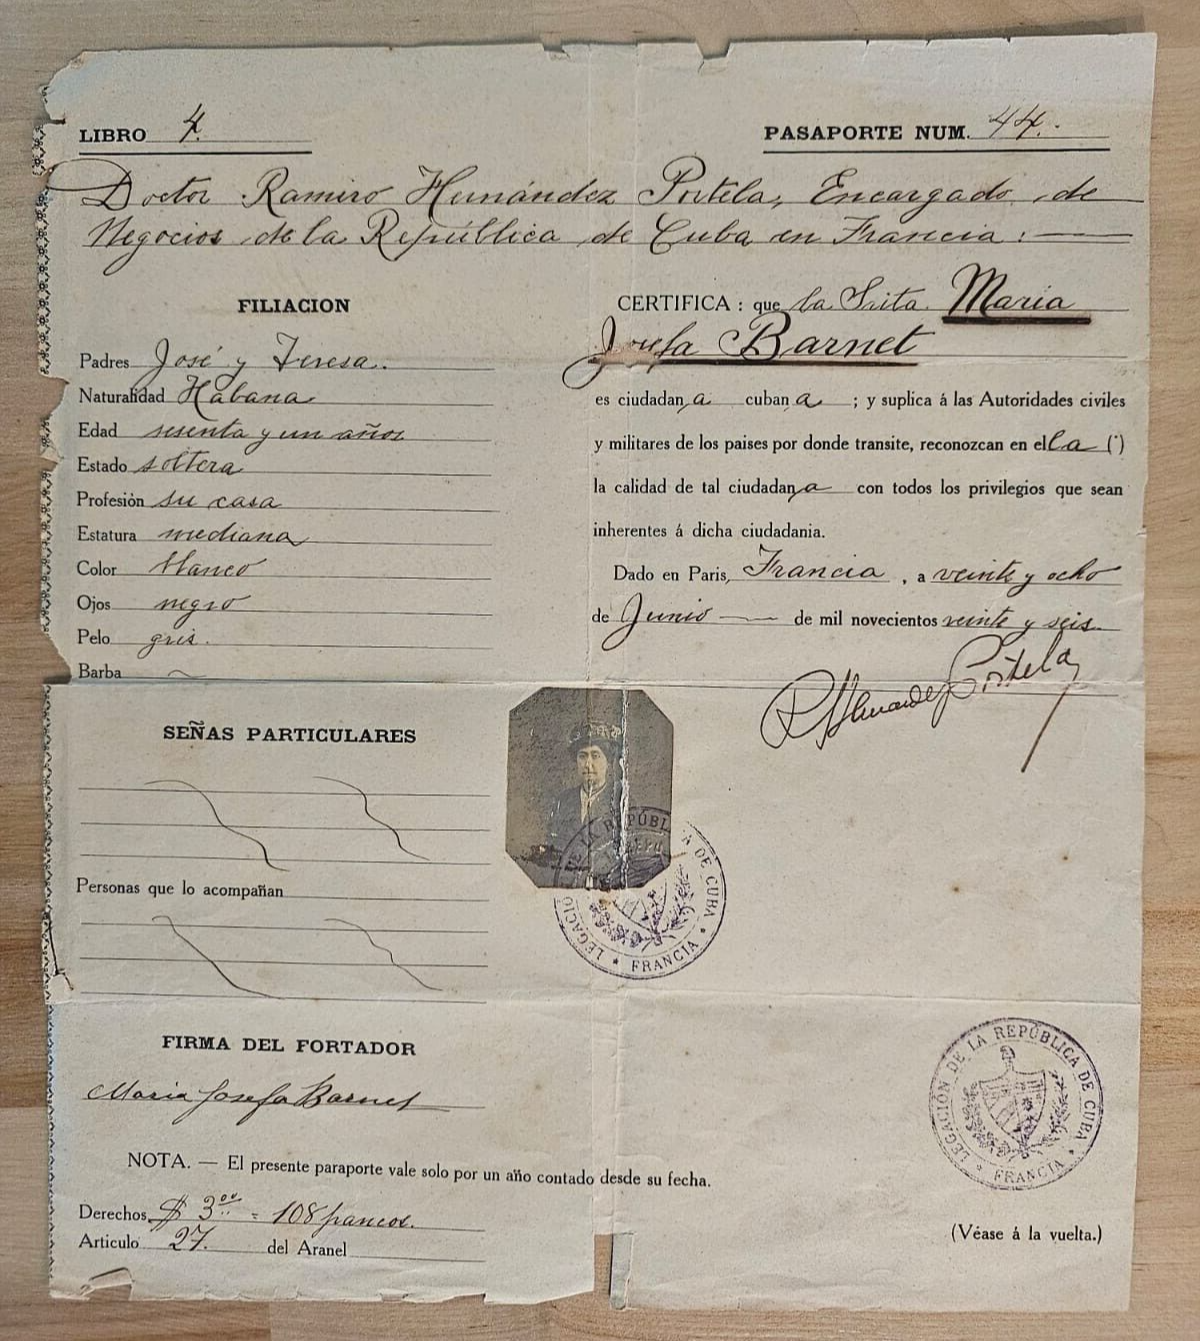 LIBRO 4.
PASAPORTE NUM. 44.
Doctor Ramiro Hernández Portela, Encargado de
Negocios de la República de Cuba en Francia:
FILIACION
Padres José y Teresa.
Naturalidad Habana
Edad sesenta y un años
Estado soltera
Profesión su casa
Estatura mediana
Color blanco
Ojos negro
Pelo gris.
Barba
CERTIFICA: que la Srita. Maria
Josefa Barnet
es ciudadana cubana ; y suplica á las Autoridades civiles
y militares de los paises por donde transite, reconozcan en el la (*)
la calidad de tal ciudadana con todos los privilegios que sean
inherentes á dicha ciudadania.
Dado en Paris, Francia, a veinte y ocho
de Junio de mil novecientos veinte y seis.
R Hernandez Portela
SEÑAS PARTICULARES
Personas que lo acompañan
LEGACIÓN DE LA REPÚBLICA DE CUBA
FRANCIA
FIRMA DEL FORTADOR
Maria Josefa Barnet
LEGACIÓN DE LA REPÚBLICA DE CUBA
FRANCIA
NOTA. — El presente paraporte vale solo por un año contado desde su fecha.
Derechos $ 3.00 = 108 francos.
Articulo 27. del Aranel
(Véase á la vuelta.)